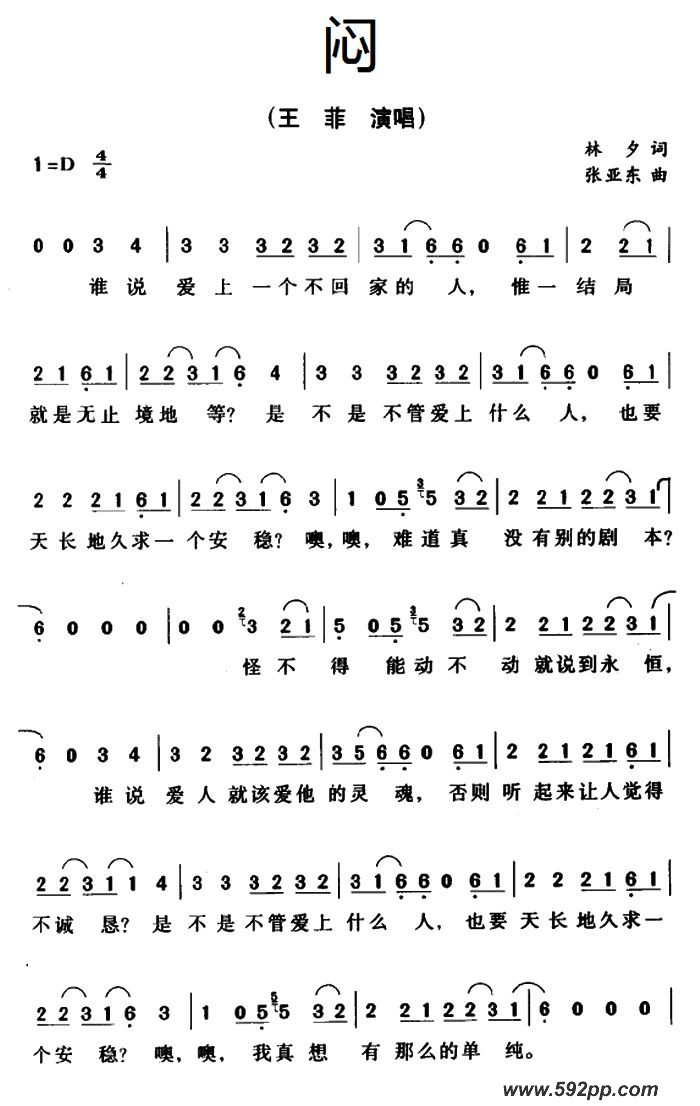 闷
(王 菲 演唱)
1=D 4/4
林 夕 词
张亚东 曲
0 0 3 4 | 3 3 3 2 3 2 | 3 1 6 6 0 6 1 | 2 2 1 |
谁 说 爱 上 一个不回 家的 人, 惟一 结 局
2 1 6 1 | 2 2 3 1 6 4 | 3 3 3 2 3 2 | 3 1 6 6 0 6 1 |
就是无止 境地 等? 是 不 是 不管爱上 什么 人, 也要
2 2 2 1 6 1 | 2 2 3 1 6 3 | 1 0 5 3 5 3 2 | 2 2 1 2 2 3 1 |
天长地久求一个安 稳? 噢,噢, 难道真 没有别的剧 本?
6 0 0 0 | 0 0 2 3 2 1 | 5 0 5 3 5 3 2 | 2 2 1 2 2 3 1 |
怪不 得 能动不 动就说到永 恒,
6 0 3 4 | 3 2 3 2 3 2 | 3 5 6 6 0 6 1 | 2 2 1 2 1 6 1 |
谁 说 爱人就该爱他的灵 魂, 否则听起来让人觉得
2 2 3 1 1 4 | 3 3 3 2 3 2 | 3 1 6 6 0 6 1 | 2 2 2 1 6 1 |
不诚 恳? 是 不是不管爱上 什么 人, 也要 天长地久求一
2 2 3 1 6 3 | 1 0 5 5 5 3 2 | 2 2 1 2 2 3 1 | 6 0 0 0 |
个安 稳? 噢,噢, 我真想 有 那么的单 纯。
www.592pp.com